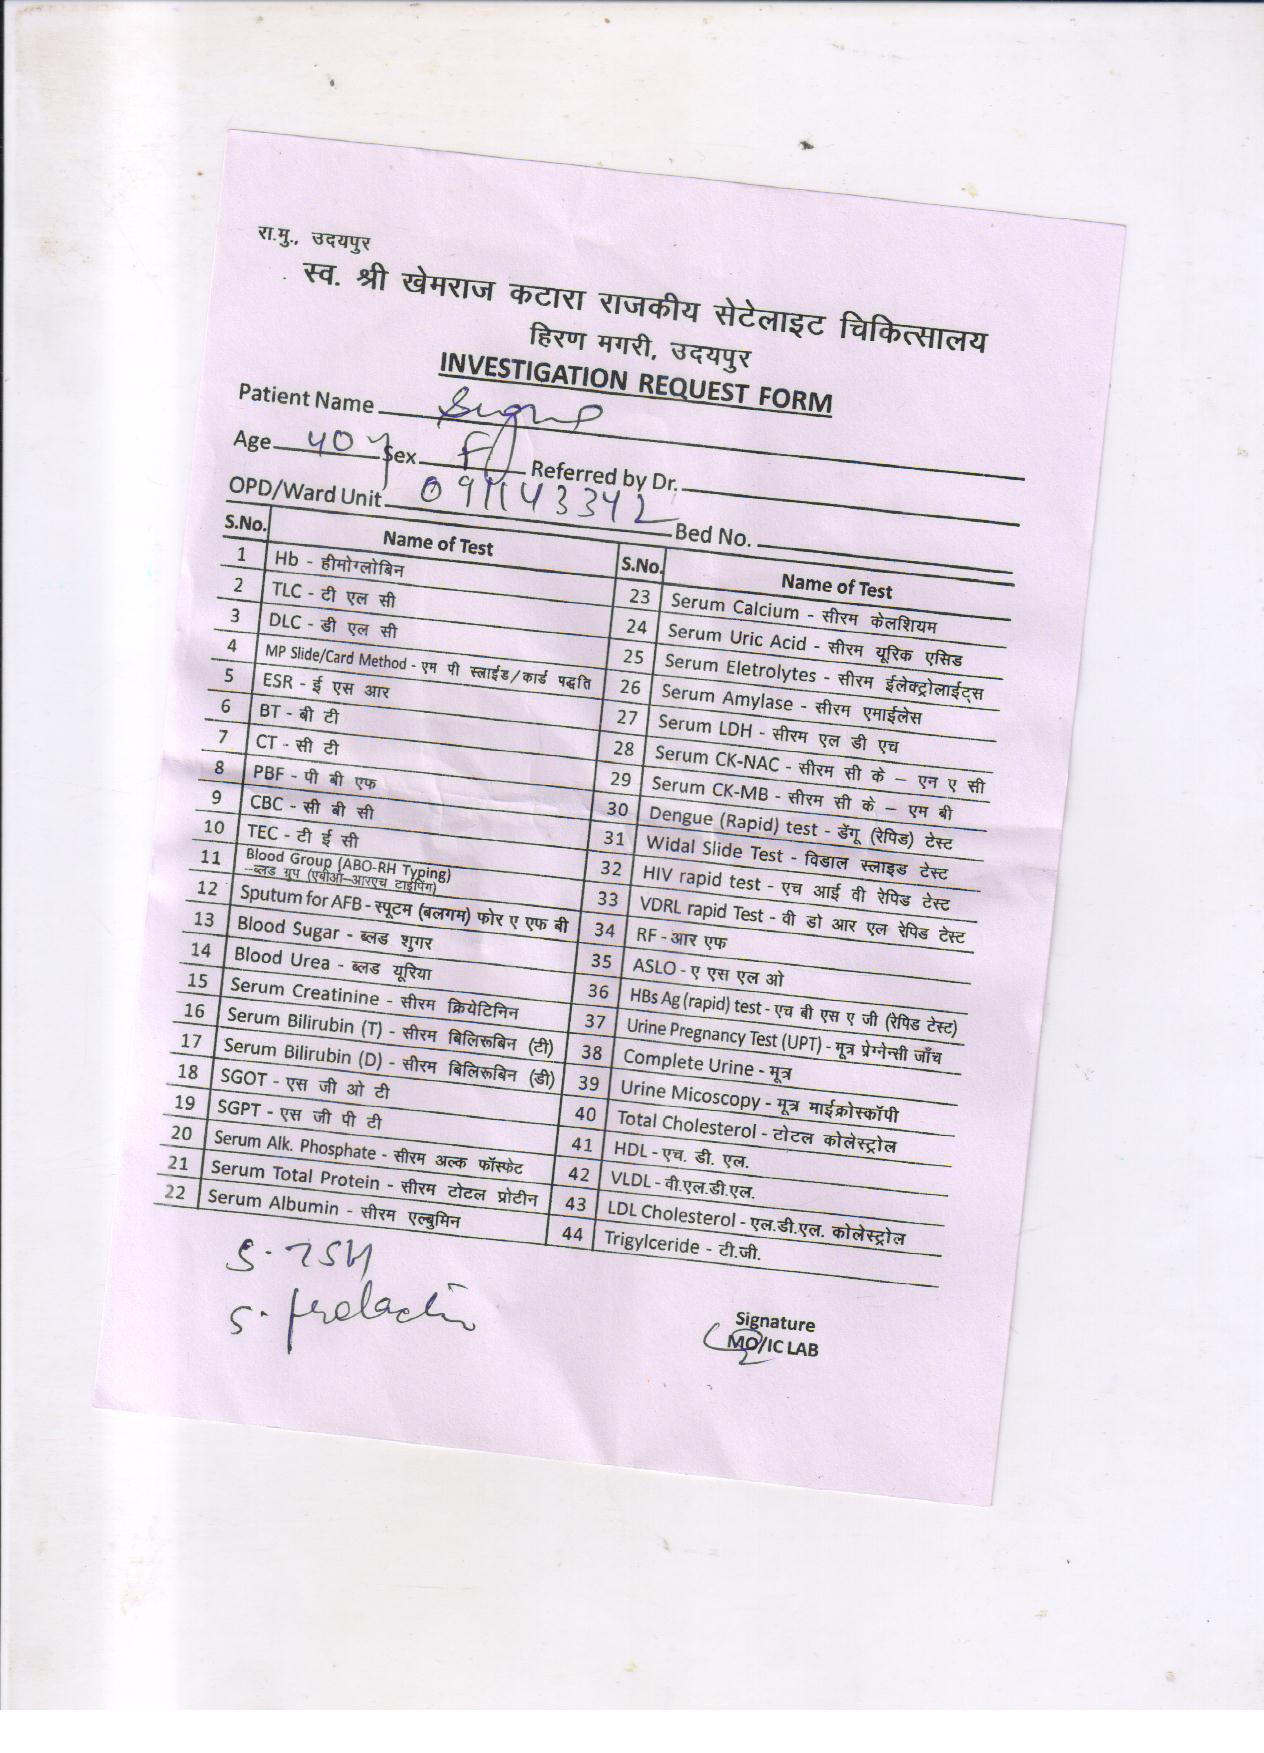 रा.मु., उदयपुर
स्व. श्री खेमराज कटारा राजकीय सेटेलाइट चिकित्सालय
हिरण मगरी, उदयपुर
INVESTIGATION REQUEST FORM
Patient Name
Age 40 y Sex F Referred by Dr.
OPD/Ward Unit 091143342 Bed No.
S.No. Name of Test S.No. Name of Test
1 Hb - हीमोग्लोबिन
2 TLC - टी एल सी
3 DLC - डी एल सी
4 MP Slide/Card Method - एम पी स्लाईड/कार्ड पद्धति
5 ESR - ई एस आर
6 BT - बी टी
7 CT - सी टी
8 PBF - पी बी एफ
9 CBC - सी बी सी
10 TEC - टी ई सी
11 Blood Group (ABO-RH Typing)
--ब्लड ग्रुप (एबीओ-आरएच टाईपिंग)
12 Sputum for AFB - स्पूटम (बलगम) फोर ए एफ बी
13 Blood Sugar - ब्लड शुगर
14 Blood Urea - ब्लड यूरिया
15 Serum Creatinine - सीरम क्रियेटिनिन
16 Serum Bilirubin (T) - सीरम बिलिरूबिन (टी)
17 Serum Bilirubin (D) - सीरम बिलिरूबिन (डी)
18 SGOT - एस जी ओ टी
19 SGPT - एस जी पी टी
20 Serum Alk. Phosphate - सीरम अल्क फॉस्फेट
21 Serum Total Protein - सीरम टोटल प्रोटीन
22 Serum Albumin - सीरम एल्बुमिन
23 Serum Calcium - सीरम केलशियम
24 Serum Uric Acid - सीरम यूरिक एसिड
25 Serum Eletrolytes - सीरम ईलेक्ट्रोलाईट्स
26 Serum Amylase - सीरम एमाईलेस
27 Serum LDH - सीरम एल डी एच
28 Serum CK-NAC - सीरम सी के – एन ए सी
29 Serum CK-MB - सीरम सी के – एम बी
30 Dengue (Rapid) test - डेंगू (रेपिड) टेस्ट
31 Widal Slide Test - विडाल स्लाइड टेस्ट
32 HIV rapid test - एच आई वी रेपिड टेस्ट
33 VDRL rapid Test - वी डी आर एल रेपिड टेस्ट
34 RF - आर एफ
35 ASLO - ए एस एल ओ
36 HBs Ag (rapid) test - एच बी एस ए जी (रेपिड टेस्ट)
37 Urine Pregnancy Test (UPT) - मूत्र प्रेग्नेन्सी जाँच
38 Complete Urine - मूत्र
39 Urine Micoscopy - मूत्र माईक्रोस्कॉपी
40 Total Cholesterol - टोटल कोलेस्ट्रोल
41 HDL - एच. डी. एल.
42 VLDL - वी.एल.डी.एल.
43 LDL Cholesterol - एल.डी.एल. कोलेस्ट्रोल
44 Trigylceride - टी.जी.
S. TSH
S. prolactin
Signature
MO/IC LAB